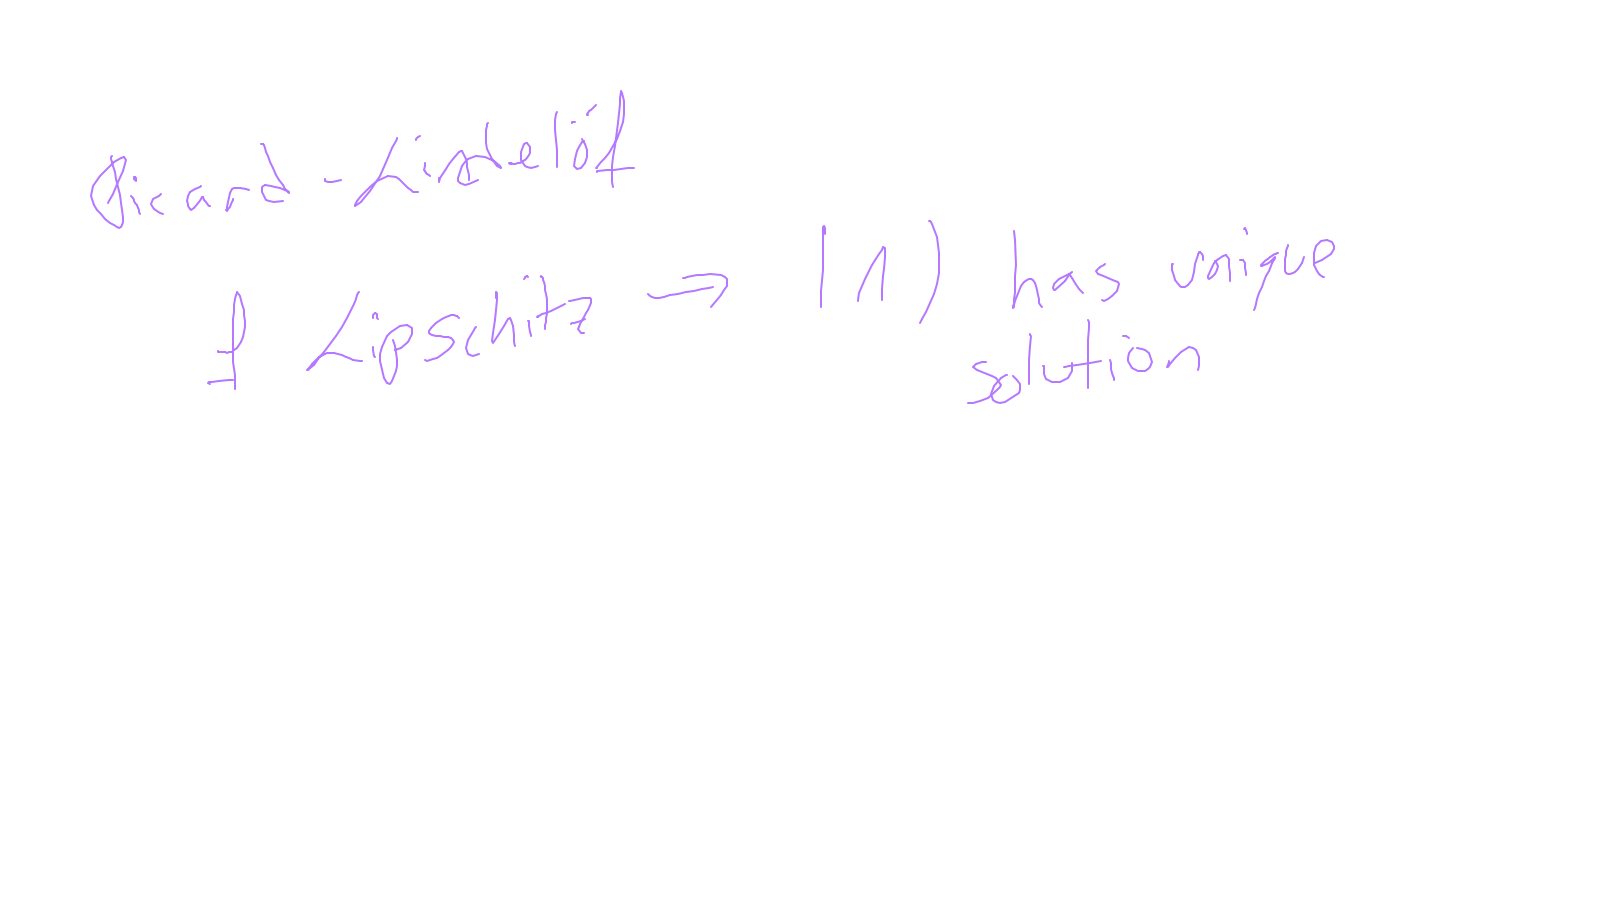 Picard-Lindelöf
f Lipschitz → (1) has unique
solution